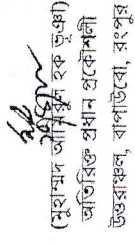 (মুহাম্মদ আমিরুল হক ভূঞা)
অতিরিক্ত প্রধান প্রকৌশলী
উত্তরাঞ্চল, বাপাউবো, রংপুর